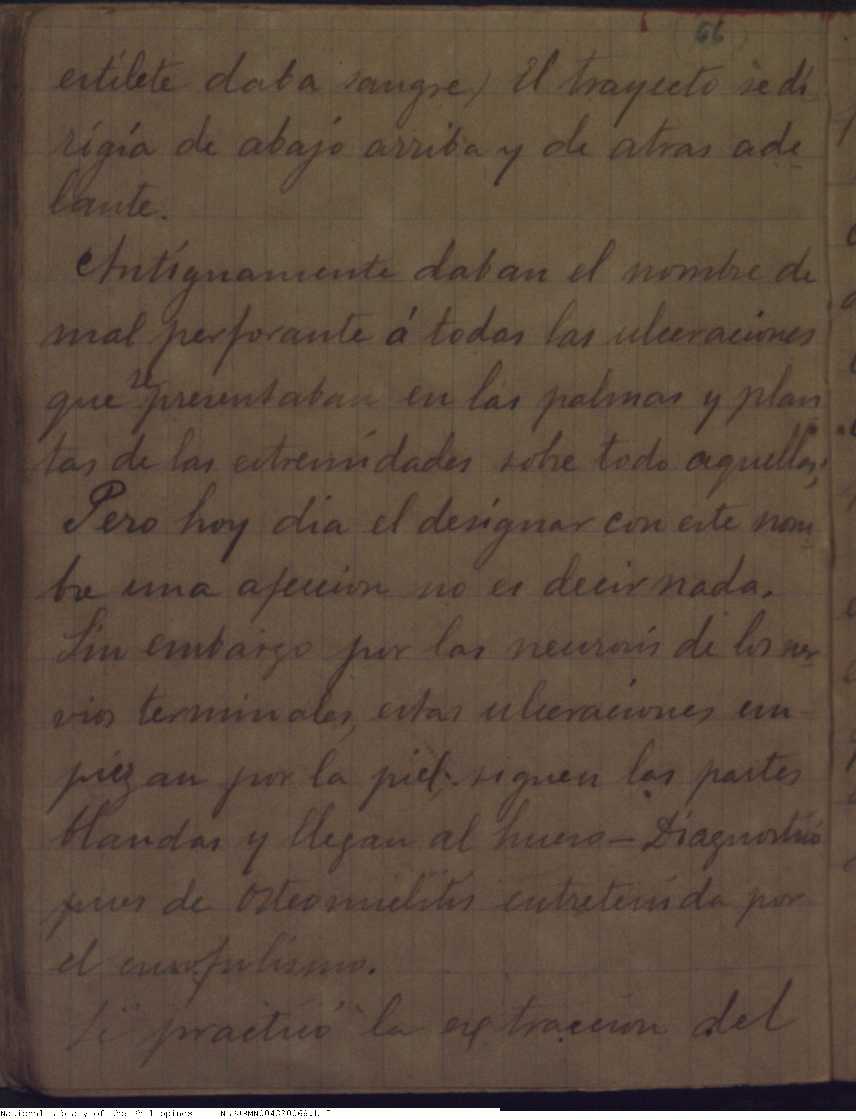 66
estilete daba sangre) El trayecto se di
rigía de abajo arriba y de atras ade
lante.
Antíguamente daban el nombre de
mal perforante á todas las ulceraciones
que se presentaban en las palmas y plan
tas de las estremidades sobre todo aquellas;
Pero hoy dia el designar con este nom
bre una afeccion no es decir nada.
Sin embargo por las neurosis de los ner
vios terminales, estas ulceraciones em-
piezan por la piel, siguen las partes
blandas y llegan al hueso — Diagnostico
pues de Osteomielitis entretenida por
el escrofulismo.
Se practicó la extraccion del
National Library of the Philippines